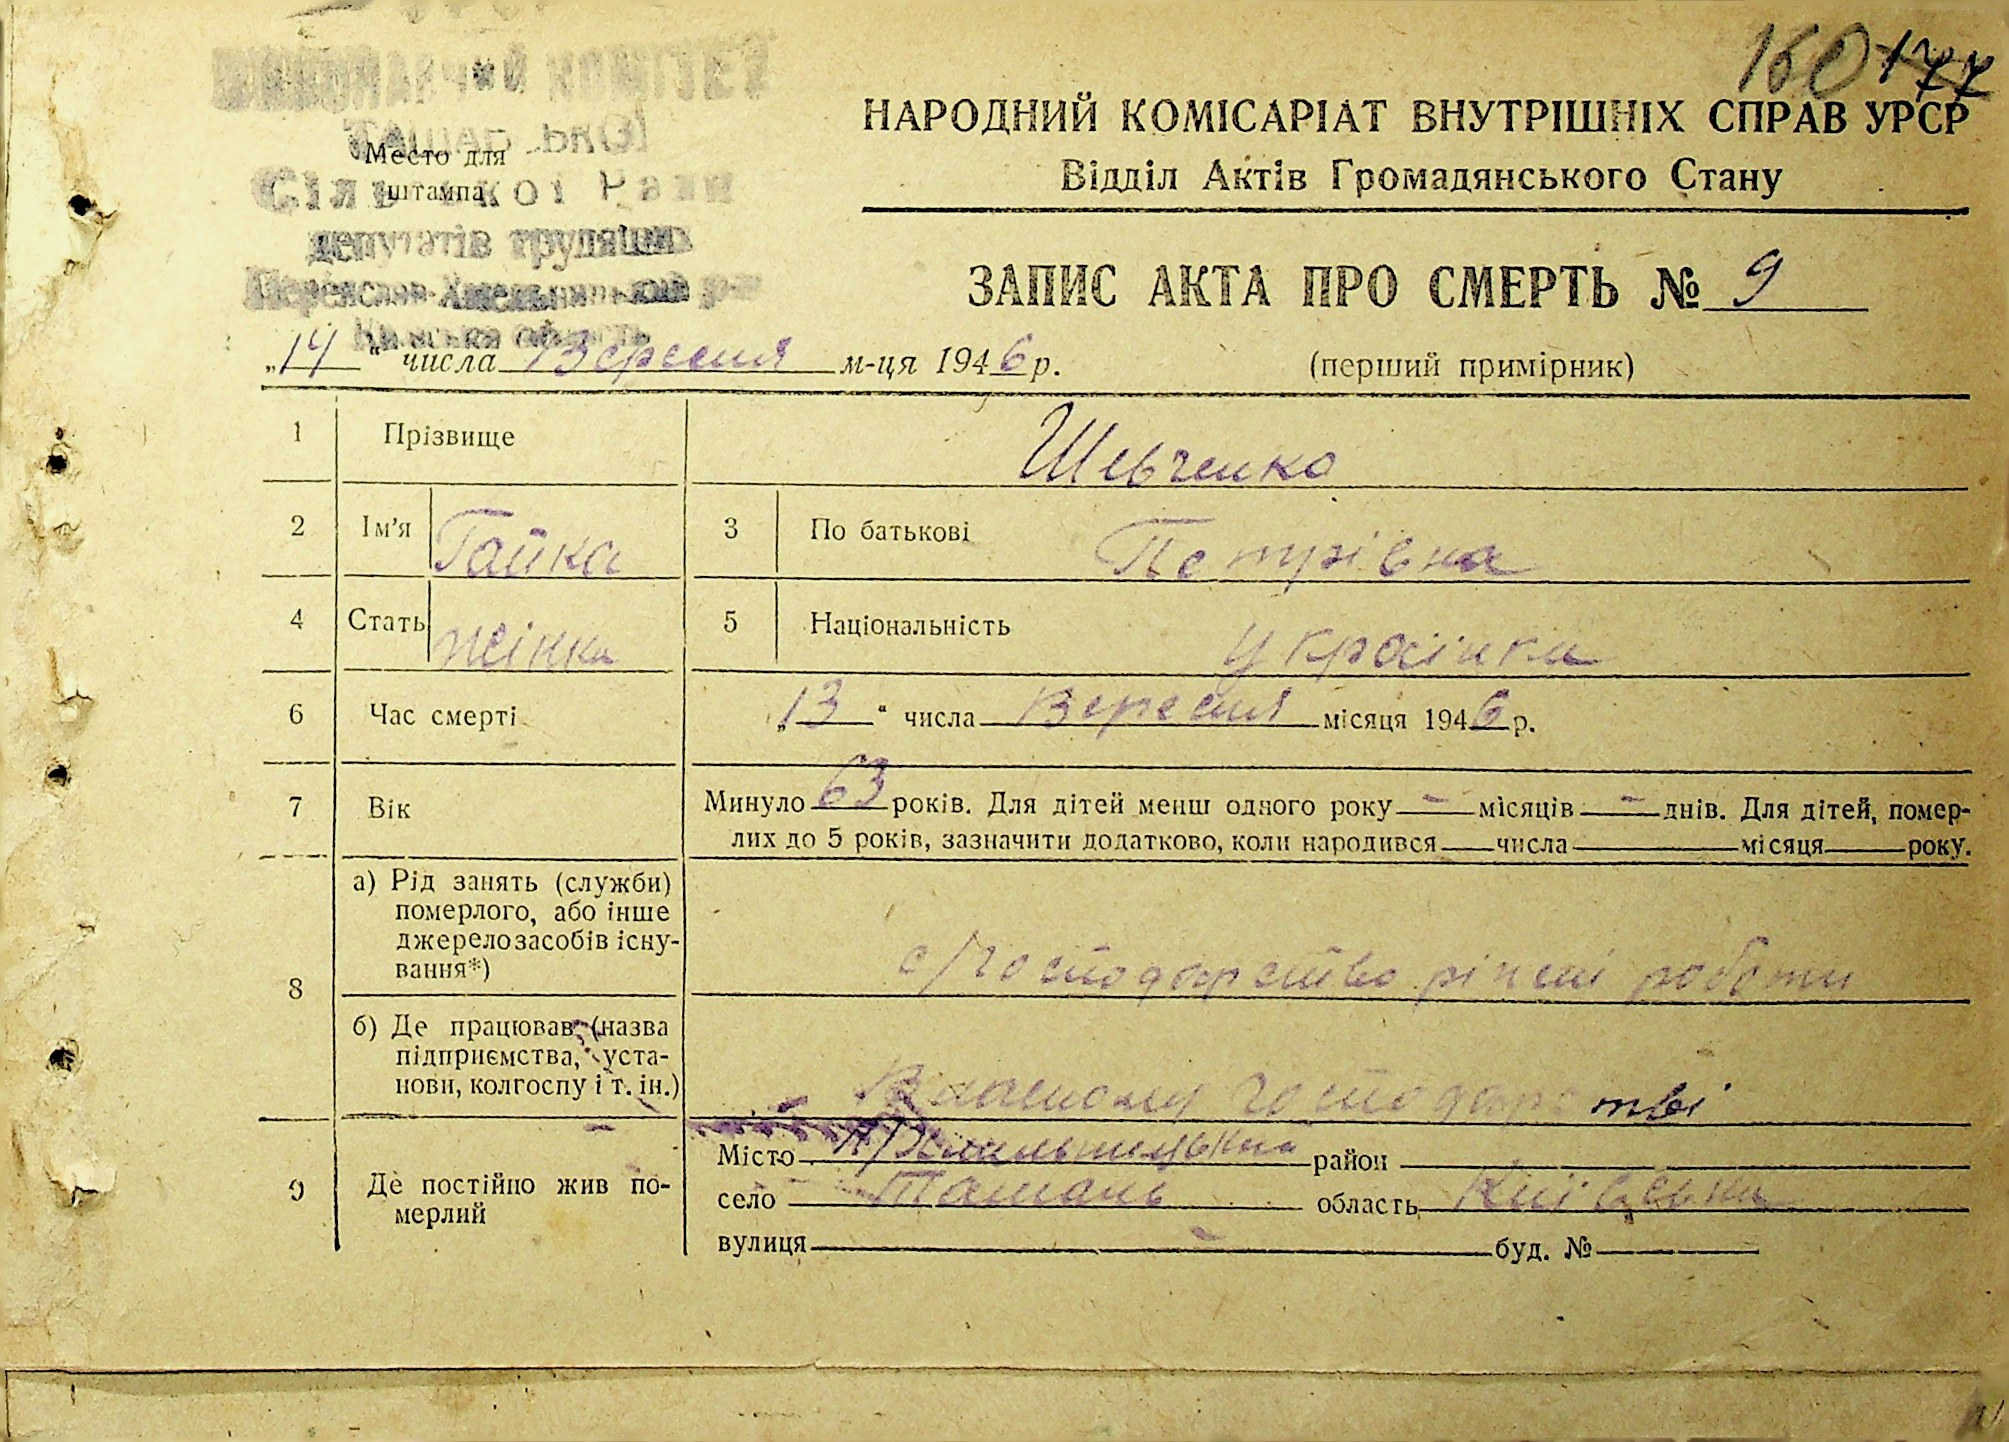 160 177
ВИКОНАВЧИЙ КОМІТЕТ
Место для
штампа
Сільської Ради
депутатів трудящих
Переяслав-Хмельницький р-н
Київська область
НАРОДНИЙ КОМІСАРІАТ ВНУТРІШНІХ СПРАВ УРСР
Відділ Актів Громадянського Стану
ЗАПИС АКТА ПРО СМЕРТЬ № 9
„14“ числа Вересня м-ця 1946 р.
(перший примірник)
1 Прізвище Шевченко
2 Ім’я Гапка 3 По батькові Петрівна
4 Стать жінка 5 Національність українка
6 Час смерті „13“ числа Вересня місяця 1946 р.
7 Вік Минуло 63 років. Для дітей менш одного року - місяців - днів. Для дітей, помер-
лих до 5 років, зазначити додатково, коли народився числа місяця року.
8 а) Рід занять (служби)
померлого, або інше
джерело засобів існу-
вання*) с/господарство різні роботи
б) Де працював (назва
підприємства, уста-
нови, колгоспу і т. ін.) В власному господарстві
9 Де постійно жив по-
мерлий
Місто П/Хмельницький район
село Ташань область Київська
вулиця - буд. №